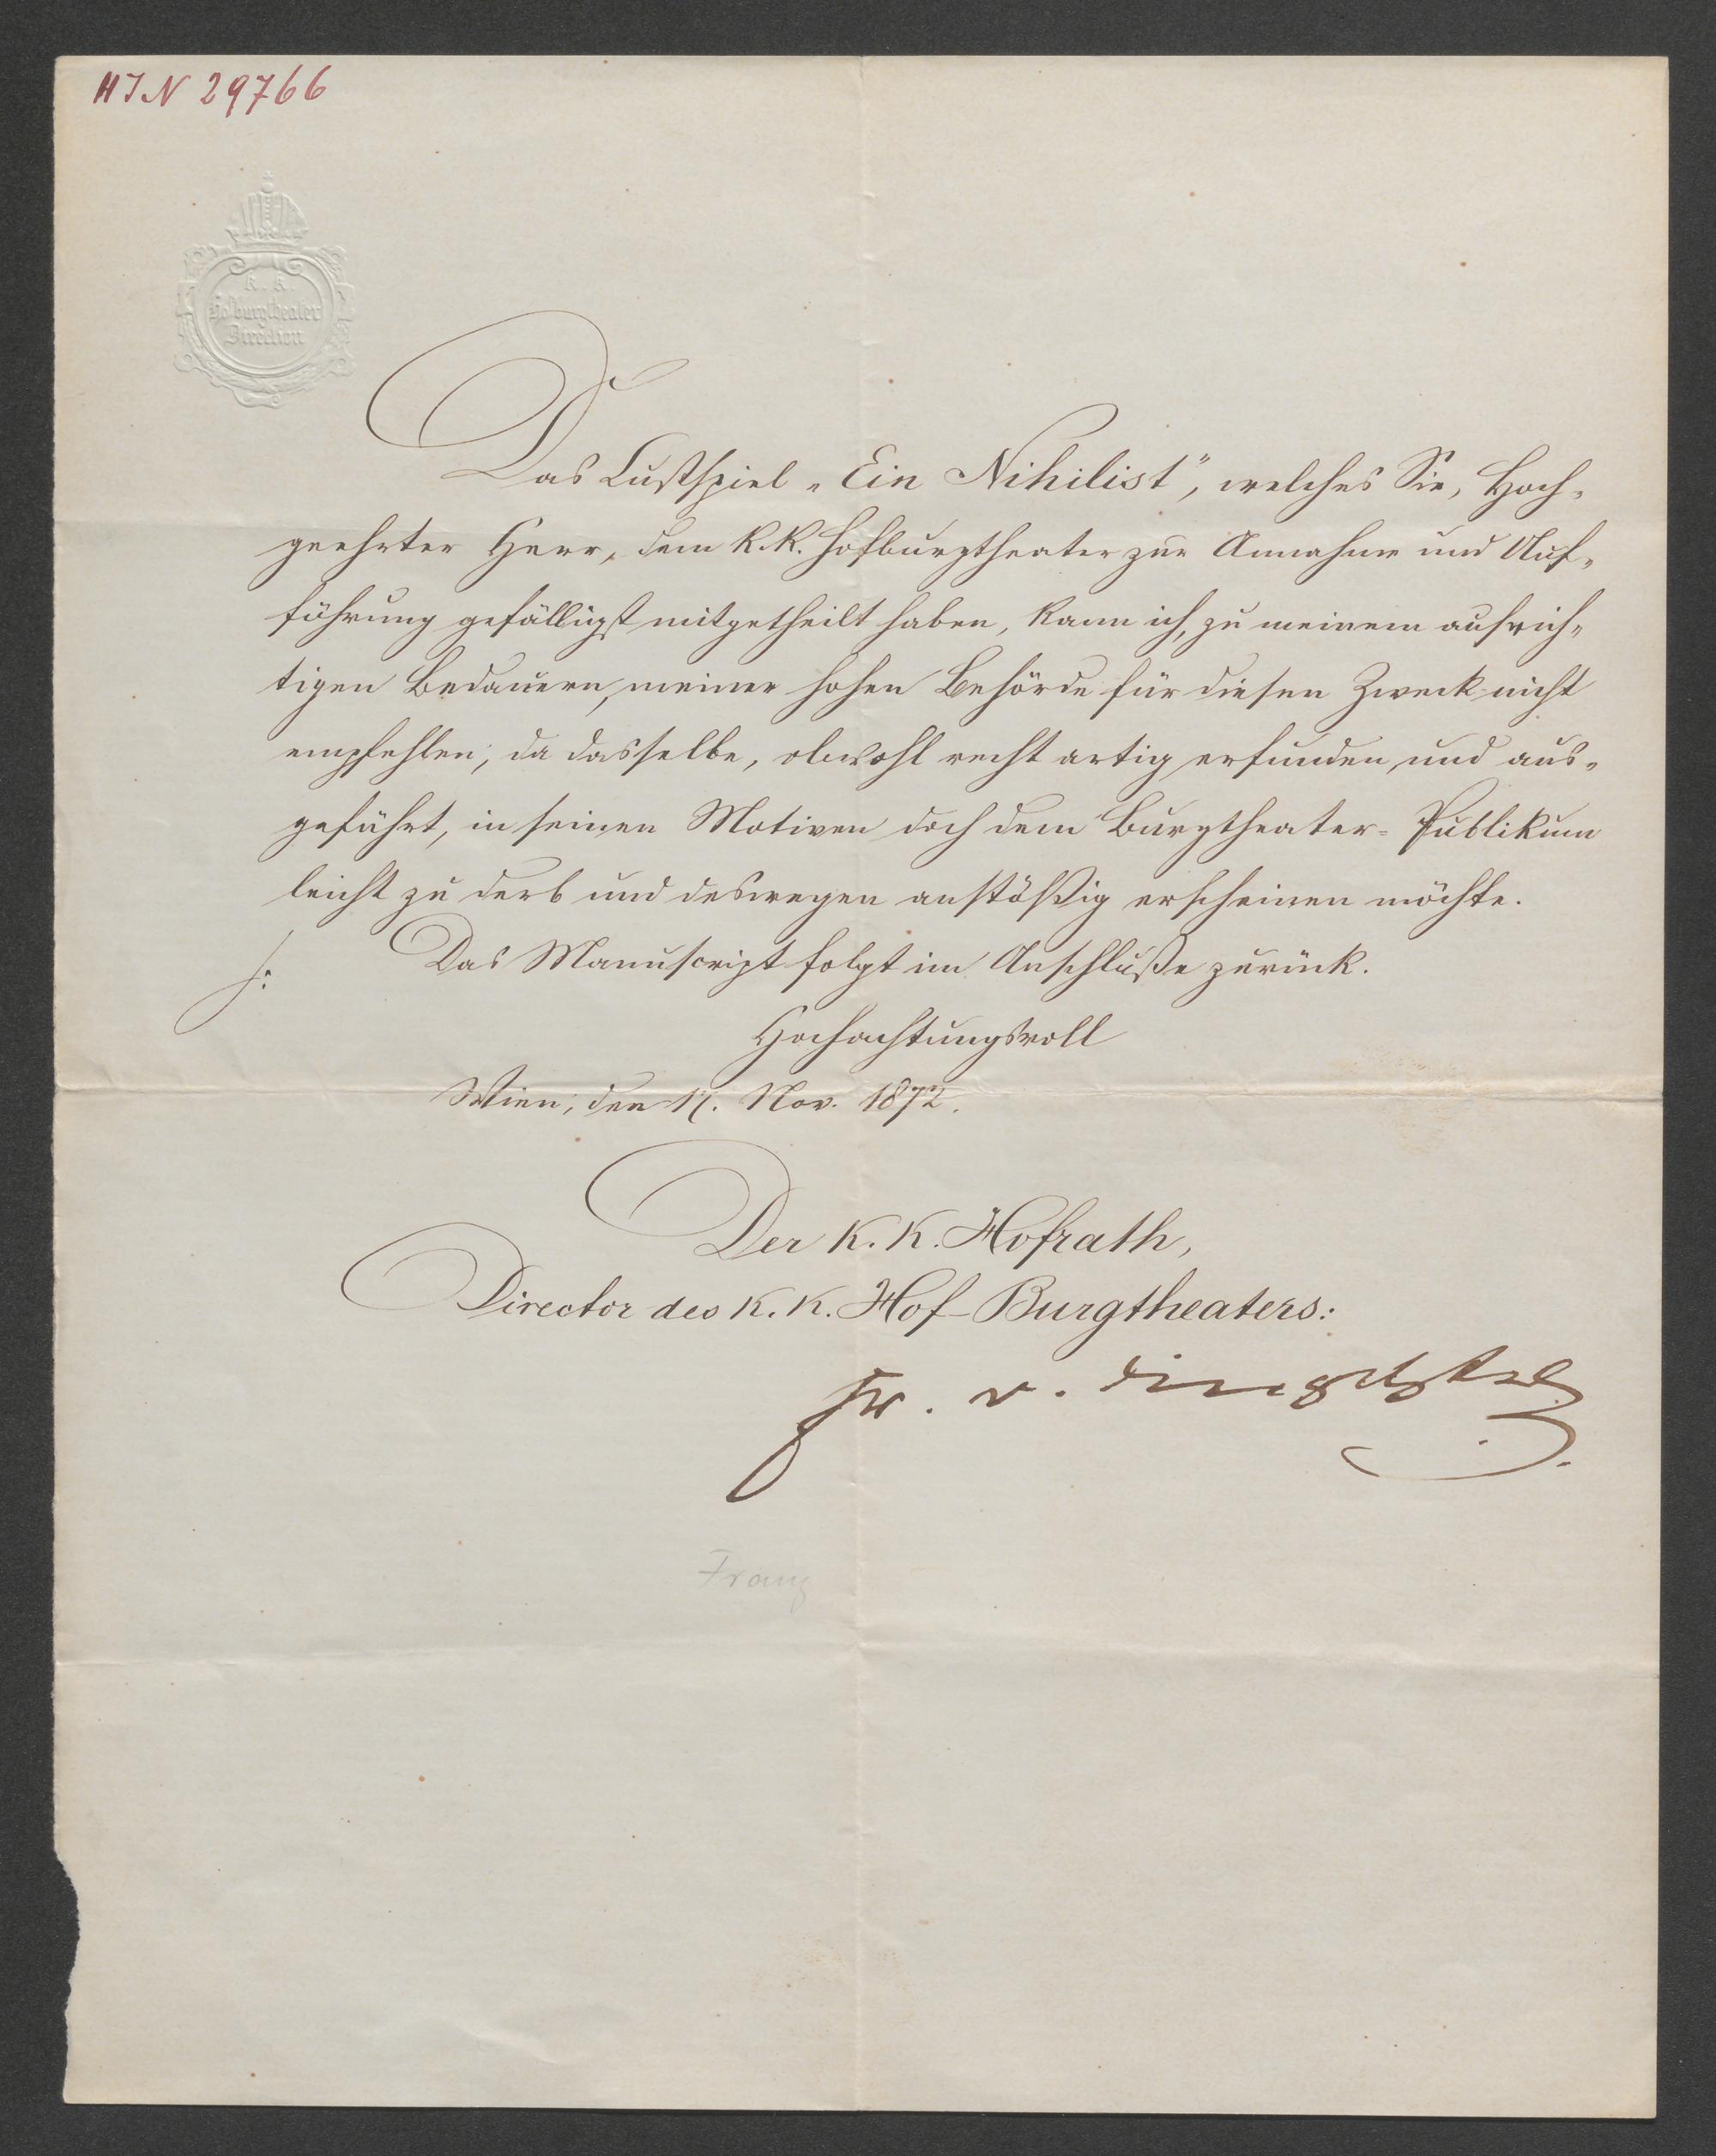 HIN 29766
K. K.
Hofburgtheater
Direction
Das Lustspiel „Ein Nihilist“, welches Sie, Hoch-
geehrter Herr, dem k. k. Hofburgtheater zur Annahme und Auf-
führung gefälligst mitgetheilt haben, kann ich, zu meinem aufrich-
tigen Bedauern, meiner hohen Behörde für diesen Zweck nicht
empfehlen; da dasselbe, obwohl recht artig erfunden und aus-
geführt, in seinen Motiven doch dem Burgtheater-Publikum
leicht zu derb und deswegen anstößig erscheinen möchte.
Das Manuscript folgt im Anschluße zurück.
Hochachtungsvoll
Wien, den Nov. 1872.
Der K. K. Hofrath,
Director des K. K. Hof-Burgtheaters:
Fr. v. Dingelstedt
Franz